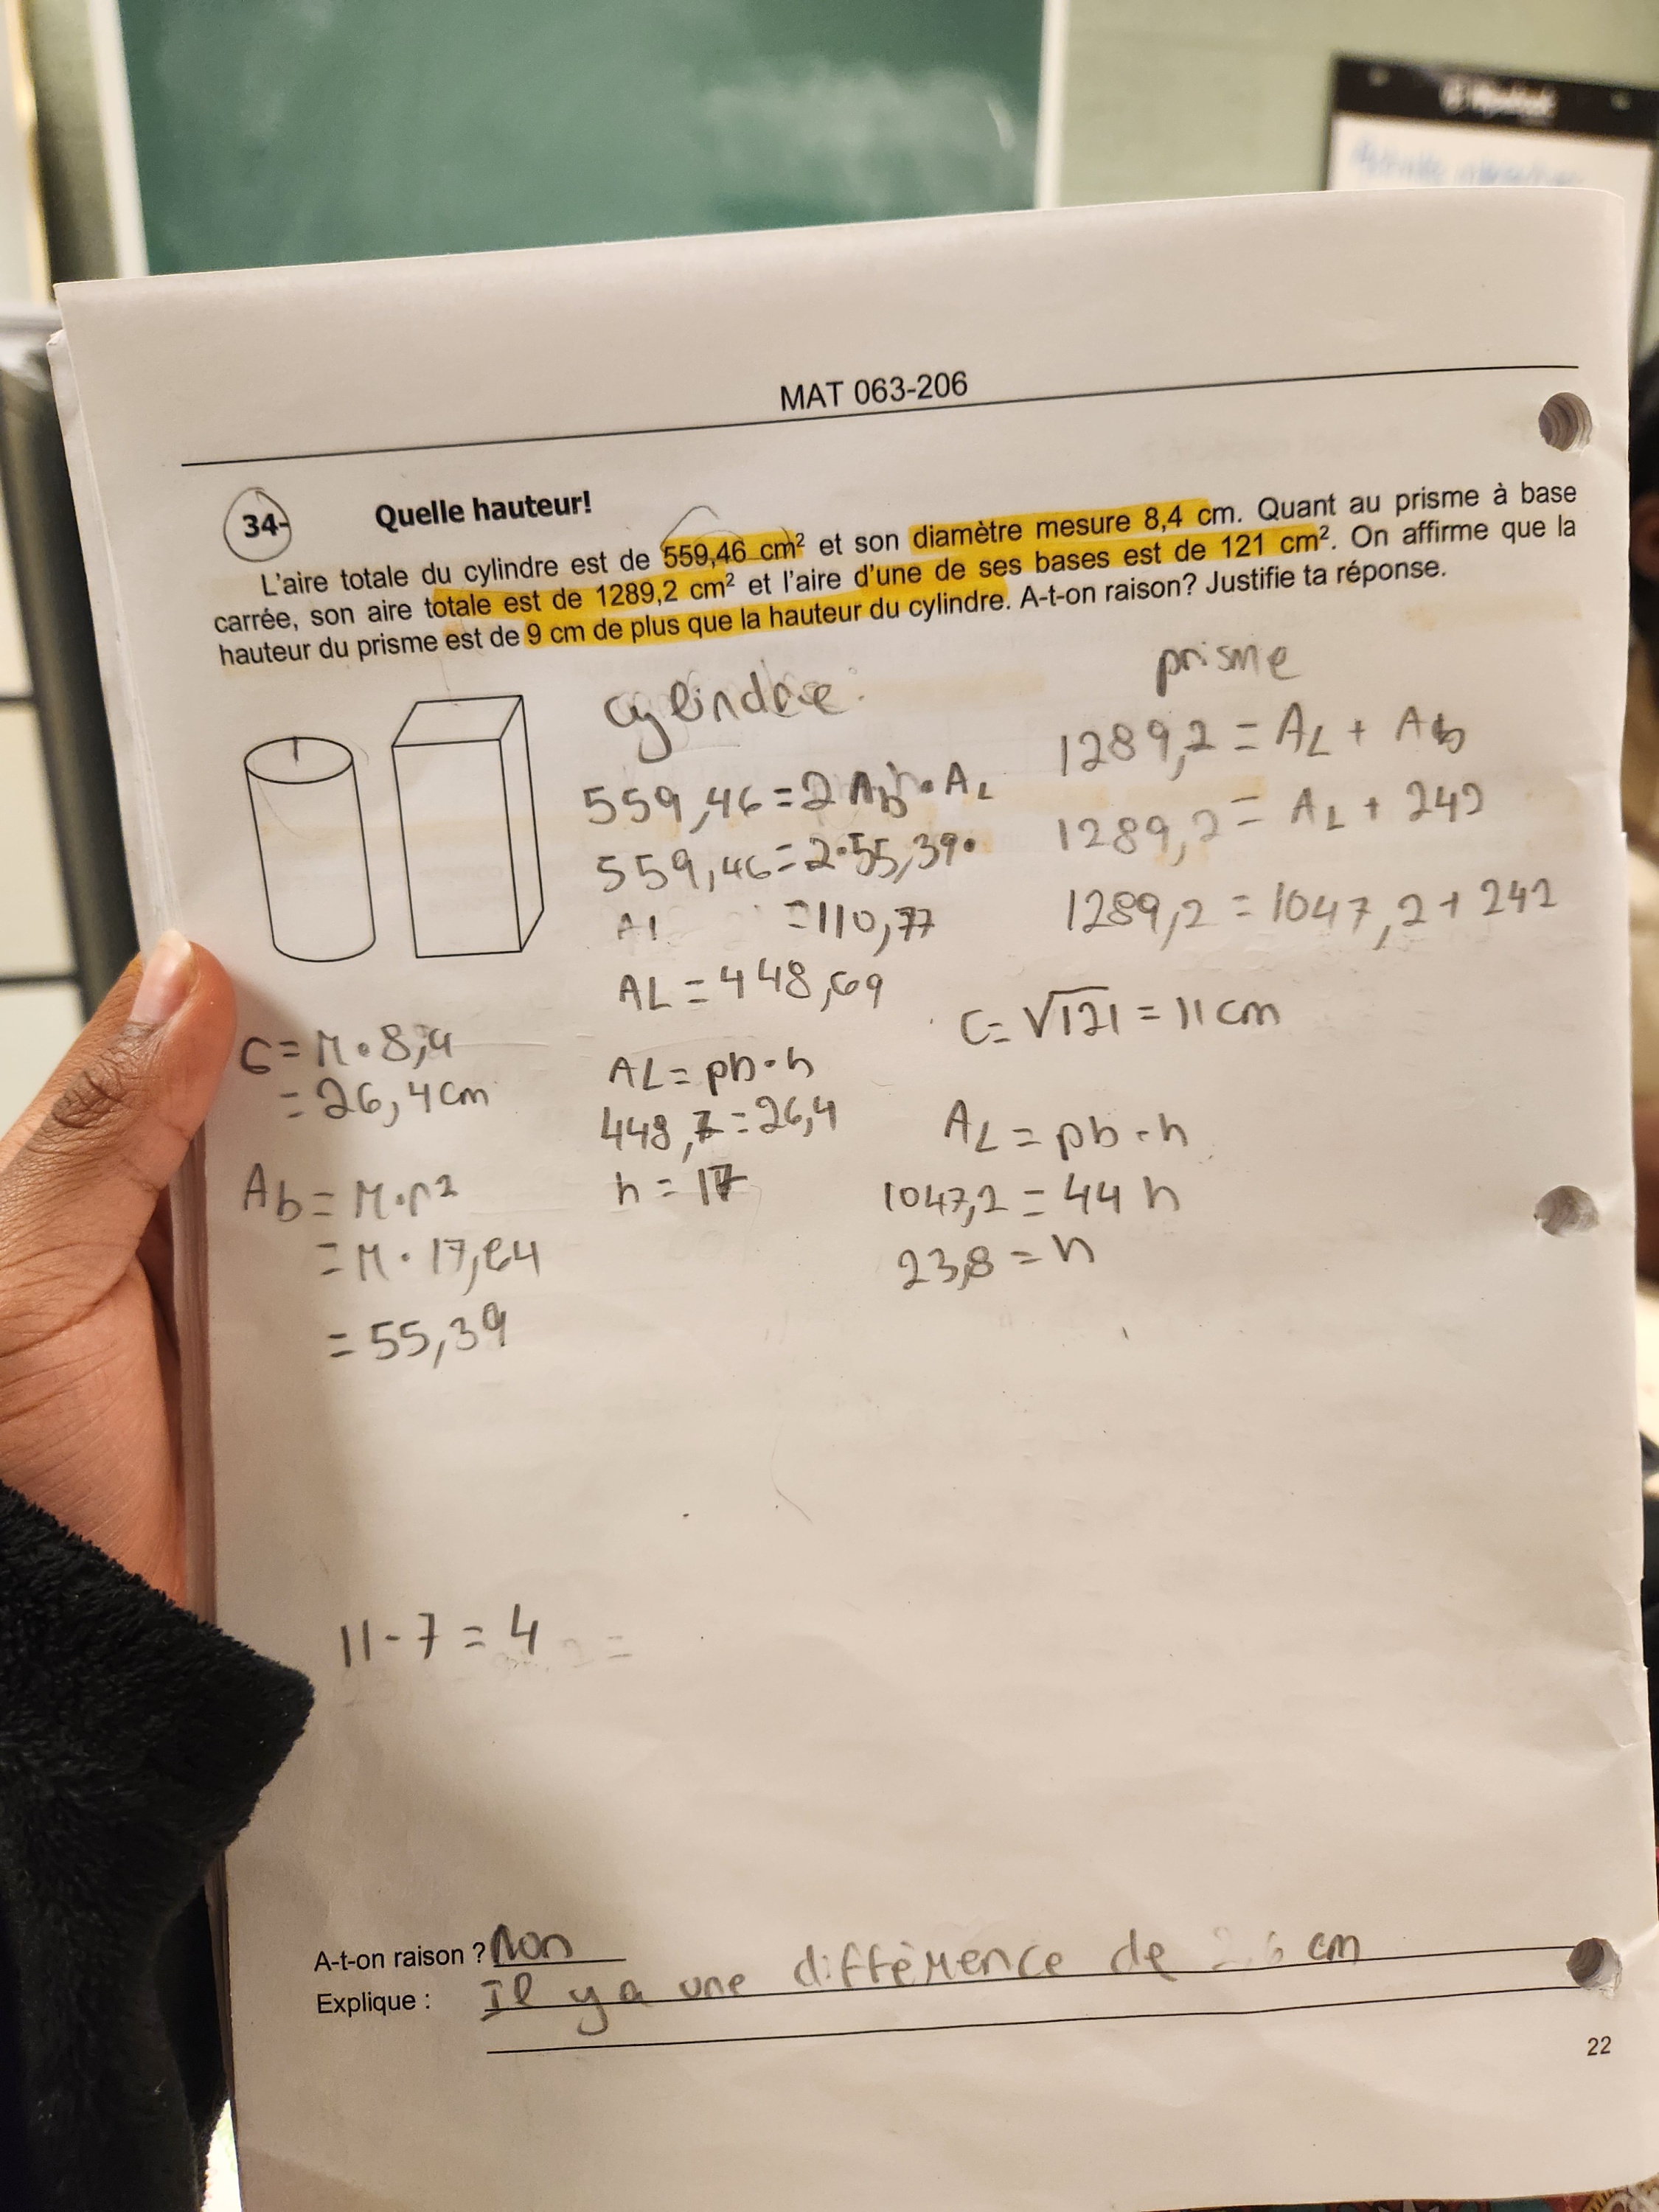 MAT 063-206
34-
Quelle hauteur!
L'aire totale du cylindre est de 559,46 cm² et son diamètre mesure 8,4 cm. Quant au prisme à base
carrée, son aire totale est de 1289,2 cm² et l'aire d'une de ses bases est de 121 cm². On affirme que la
hauteur du prisme est de 9 cm de plus que la hauteur du cylindre. A-t-on raison? Justifie ta réponse.
cylindre:
559,46 = 2 Ab • AL
559,46 = 2•55,39•
Al = 110,77
AL = 448,69
AL = pb • h
448,7 = 26,4
h = 17
prisme
1289,2 = AL + Ab
1289,2 = AL + 242
1289,2 = 1047,2 + 242
C = √121 = 11 cm
AL = pb • h
1047,2 = 44 h
23,8 = h
C = π • 8,4
= 26,4 cm
Ab = π • r²
= π • 17,64
= 55,39
11 - 7 = 4
A-t-on raison ? Non
Explique : Il y a une différence de cm
22